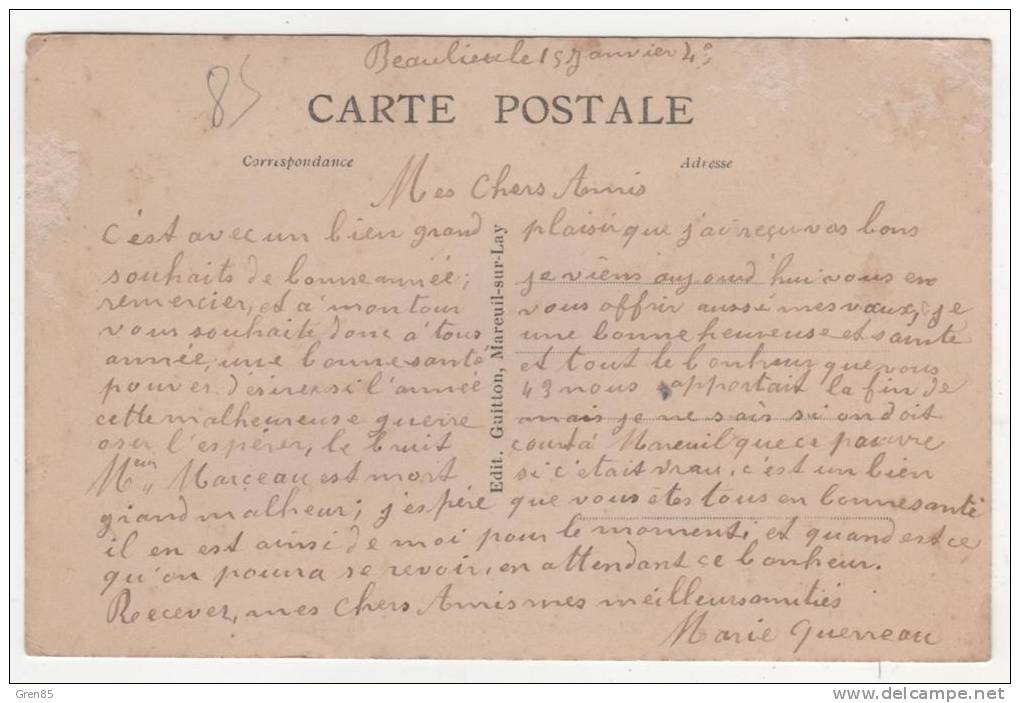 Beaulieu le 15 Janvier 43
85
CARTE POSTALE
Correspondance
Adresse
Mes Chers Amis
C'est avec un bien grand plaisir que j'ai reçu vos bons
souhaits de bonne année; je viens aujourd'hui vous en
remercier, et à mon tour vous offrir aussi mes vœux, je
vous souhaite donc à tous une bonne heureuse et sainte
année, une bonne santé et tout le bonheur que vous
pouvez désirer si l'année 43 nous apportait la fin de
cette malheureuse guerre mais je ne sais si on doit
oser l'espérer, le bruit court à Mareuil que ce pauvre
Marceau est mort si c'était vrai, c'est un bien
grand malheur; j'espère que vous êtes tous en bonne santé
il en est ainsi de moi pour le moment, et quand est ce
qu'on pourra se revoir, en attendant ce bonheur.
Recever, mes Chers Amis mes meilleurs amitiés
Marie Guerreau
Edit. Guitton, Mareuil-sur-Lay
Gren85
delcampe.net